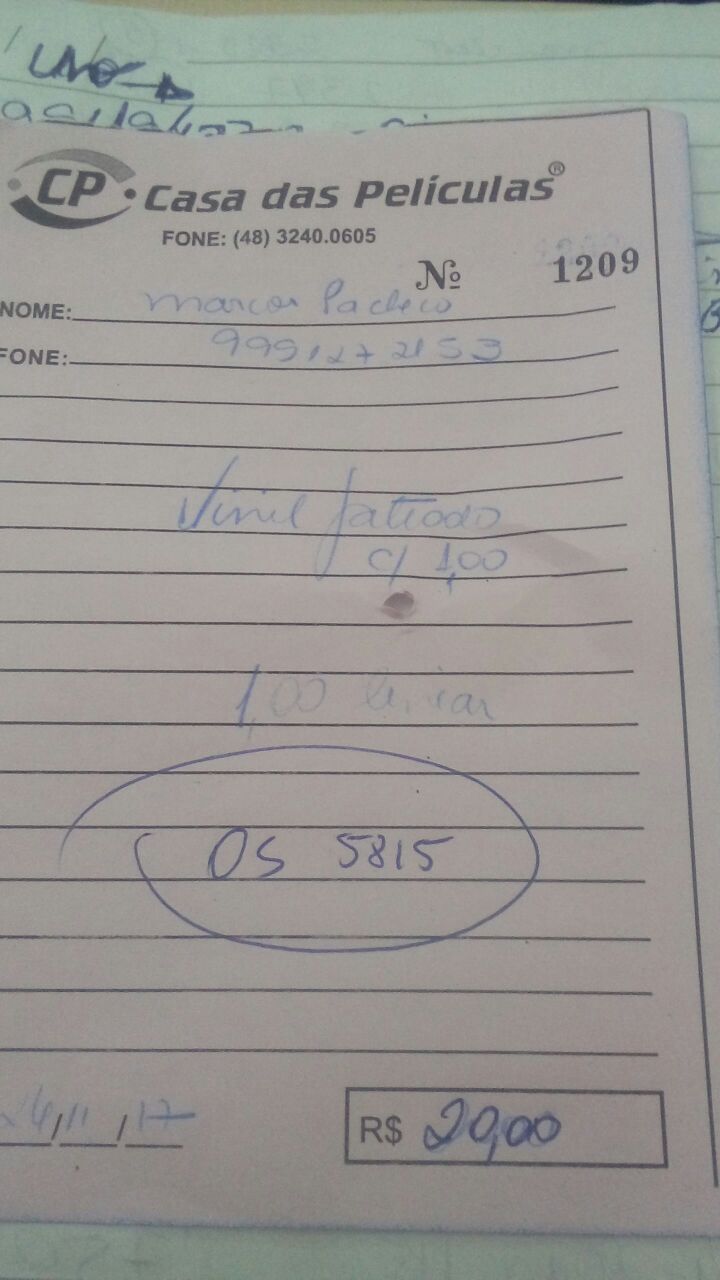 UNO
CP Casa das Películas®
FONE: (48) 3240.0605
Nº 1209
NOME: Marcos Pacheco
FONE:
Vinil jateado
c/ 1,00
1,00 linear
OS 5815
24/11/17
R$ 20,00